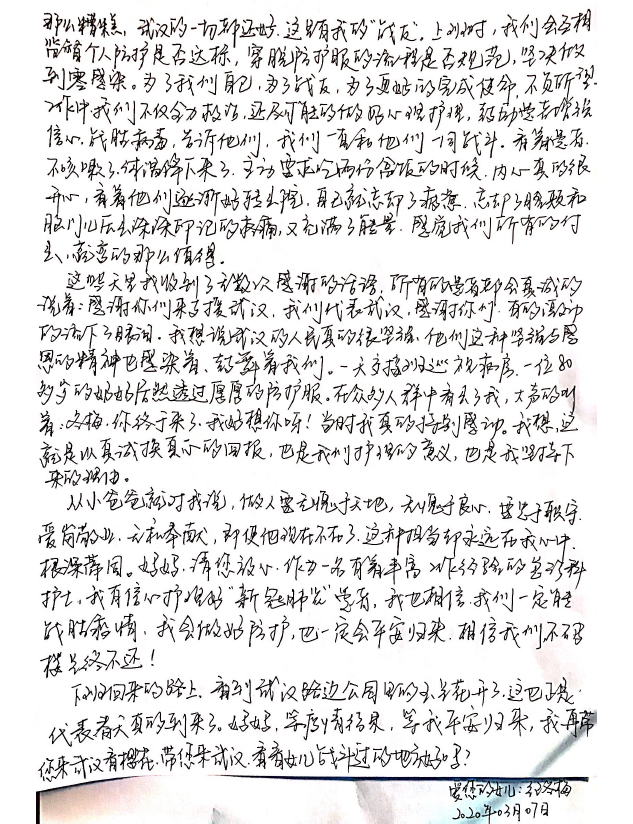 那么糟糕，武汉的一切都还好，这里有我的“战友”。上班时，我们会互相
监督个人防护是否达标，穿脱防护服的流程是否规范，坚决做
到零感染。为了我们自己，为了战友，为了更好的完成使命，不负所望
工作中我们不仅全力救治，还尽可能的做好心理护理，鼓励患者增强
信心，战胜病毒，告诉他们，我们一直和他们一同战斗。看着患者
不咳嗽了，体温降下来了，主动要求吃两份盒饭的时候，内心真的很
开心，看着他们逐渐好转出院，自己就忘却了疲惫，忘却了脸颊和
脑门儿压出深深印记的疼痛，又充满了能量，感觉我们所有的付
出，就变的那么值得。
这些天里我收到了无数次感谢的话语，所有的患者都会真诚的
说着：感谢你们来支援武汉，我们代表武汉，感谢你们，有的激动
的流下了眼泪。我想说武汉的人民真的很坚强，他们这种坚强与感
恩的精神也感染着、鼓舞着我们。一天交接班巡视病房，一位80
多岁的奶奶居然透过厚厚的防护服，在众多人群中看出了我，大声的叫
着：冬梅，你终于来了，我好想你呀！当时我真的特别感动。我想，这
就是以真诚换真心的回报，也是我们护理的意义，也是我坚持下
来的理由。
从小爸爸就对我说，做人要无愧于天地，无愧于良心，要忠于职守，
爱岗敬业，无私奉献，即使他现在不在了，这种担当却永远在我心中
根深蒂固。妈妈，请您放心，作为一名有着丰富工作经验的急诊科
护士，我有信心护理好“新冠肺炎”患者，我也相信，我们一定能
战胜疫情，我会做好防护，也一定会平安归来，相信我们不破
楼兰终不还！
下班回来的路上，看到武汉路边公园里的玉兰花开了，这也正是
代表春天真的到来了。妈妈，等疫情结束，等我平安归来，我再带
您来武汉看樱花，带您来武汉，看看女儿战斗过的地方好吗？
爱您的女儿：冬梅
2020年03月07日